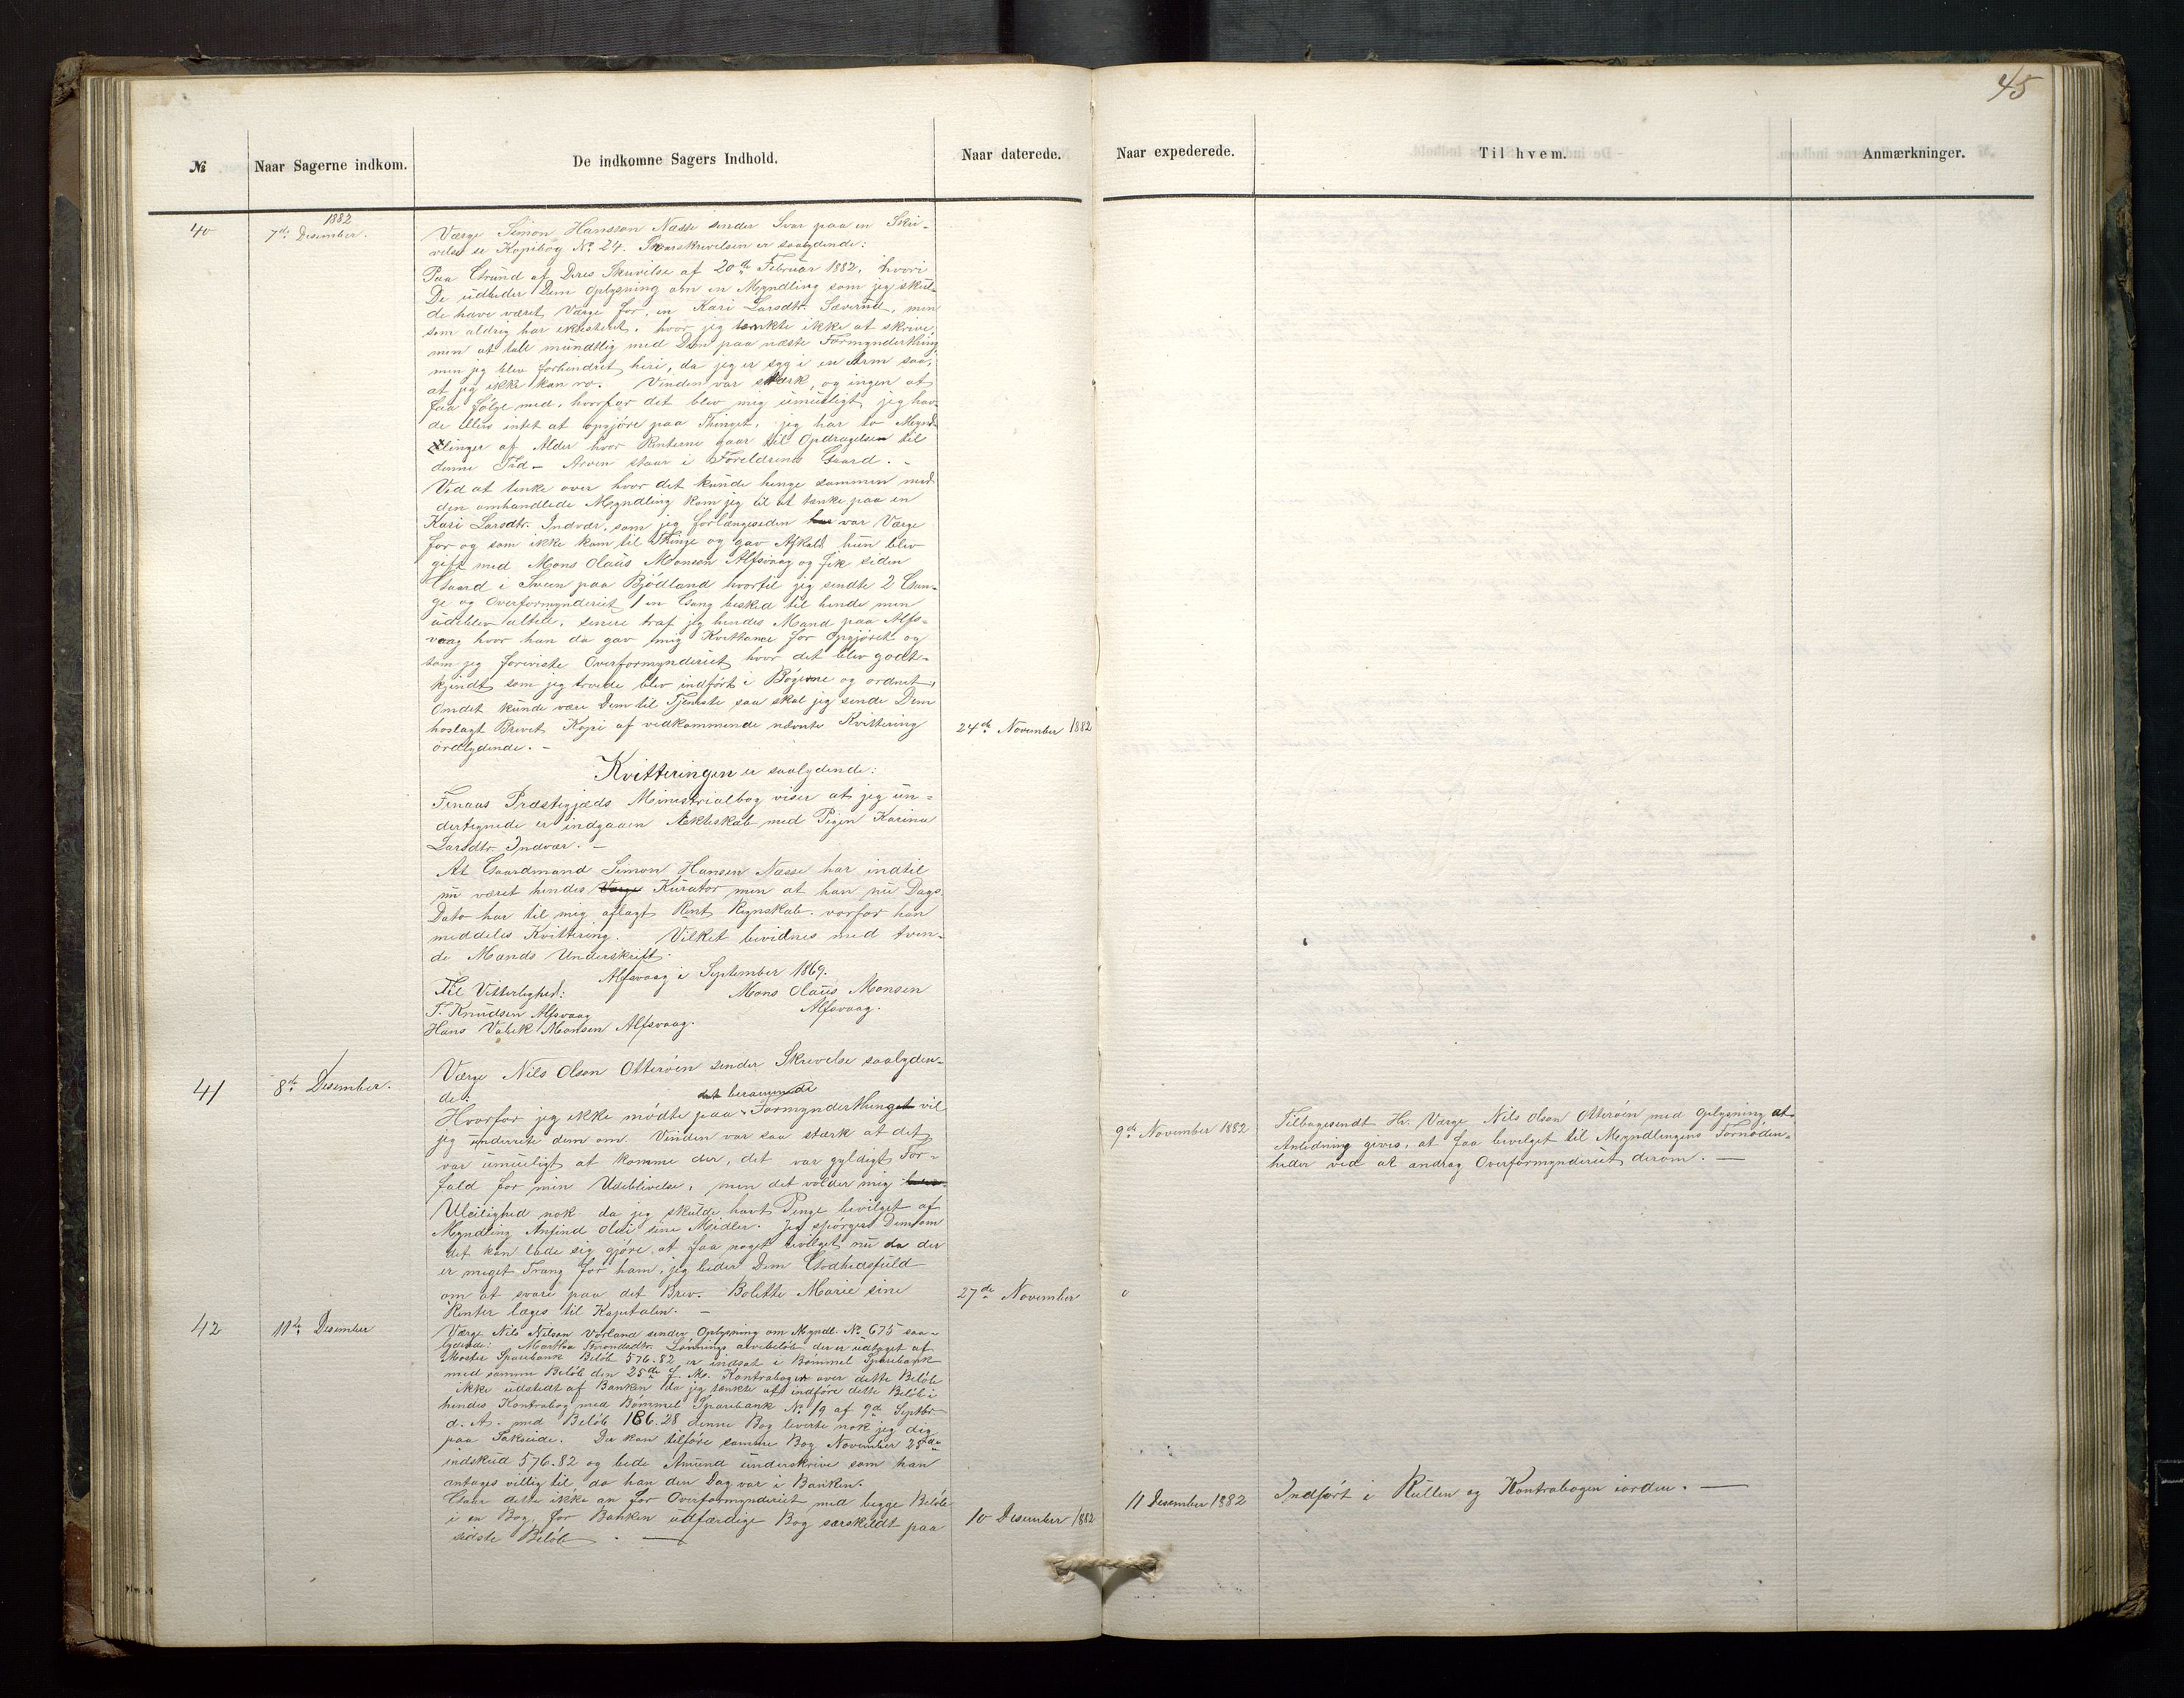 45
№
Naar Sagerne indkom.
De indkomne Sagers Indhold.
Naar daterede.
Naar expederede.
Til hvem.
Anmærkninger.
40
1882
7de Desember.
Værge Simon Hansson Næsse sender Svar paa en Skri-
velse se Kopibog No 24. Svarskrivelsen er saalydende:
Paa Grund af Deres Skrivelse af 20de Februar 1882, hvori
De udbeder Dem Oplysning om en Myndling som jeg skul-
de have været Værge for, en Kari Larsdtr. Sæverud, men
som aldrig har eksisteret, hvor jeg tænkte ikke at skrive,
men at tale mundtlig med Dem paa næste Formynderthing
men jeg blev forhindret heri, da jeg er syg i en Arm saa,
at jeg ikke kan ro. Vinden var stærk, og ingen at
faa følge med, hvorfor det blev mig umuligt, jeg hav-
de ellers intet at opgjøre paa Thinget, jeg har to Mynd-
linger af Alder hvor Renterne gaar til Opdragelsen til
denne Tid - Arven staar i Foreldrenes Gaard. -
Ved at tenke over hvor det kunde henge sammen med
den omhandlede Myndling kom jeg til at tænke paa en
Kari Larsdtr. Indvær, som jeg forlængesiden har var Værge
for og som ikke kom til Thinge og gav Afkald hun blev
gift med Mons Olaus Monsen Alfsvaag og fik siden
Gaard i Sveen paa Bjødland hvortil jeg sendte 2 Gan-
ge og Overformynderiet 1 en Gang besked til hende men
udeblev altid, senere traf jeg hendes Mand paa Alfs-
vaag hvor han da gav mig Kvittance for Opgjøret og
som jeg foreviste Overformynderiet hvor det blev godt-
kjendt som jeg troede blev indført i Bøgerne og ordnet,
Omdet kunde være Dem til Tjeneste saa skal jeg sende Dem
hoslagt Brevet Kopi af vedkommende nævnte Kvittering
ordlydende. -
24de November 1882
Kvitteringen er saalydende:
Finaas Præstegjæds Ministrialbog viser at jeg un-
dertegnede er indgaaen Ækteskab med Pigen Karina
Larsdtr. Indvær. -
At Gaardmand Simon Hansen Næsse har indtil
nu været hendes Værge Kurator, men at han nu Dags
Dato har til mig aflagt Rent Regnskab. vorfor han
meddeles Kvittering. Vilket bevidnes med tven-
de Mands Underskrift.
Alfsvaag i September 1869.
Til Vitterlighed:
Mons Olaus Monsen
T. Knudsen Alfsvaag
Alfsvaag.
Hans Valek Monsen Alfsvaag.
41
8de Desember.
Værge Nils Olson Otterøen sender Skrivelse saalyden-
de:
det berammede
Hvorfor jeg ikke mødte paa Formynderthinget vil
jeg underrete dem om. Vinden var saa stærk at det
var umuligt at komme der, det var gyldigt For-
fald for min Udeblivelse, men det volder mig
Uleilighed nok da jeg skulde havt Penge bevilget af
Myndling Anfind Oldi sine Midler. Jeg spørger Dem om
det kan lade sig gjøre at faa noget bevilget nu da der
er meget Trang for ham, jeg beder Dem Godhedsfuld
om at svare paa det Brev. Bolette Marie sine
Renter læges til Kapitalen. -
27de November
9de November 1882
Tilbagesendt Hr. Værge Nils Olson Otterøen med Oplysning at
Anledning gives, at faa bevilget til Myndlingens Fornøden-
heder ved at andrag Overformynderiet derom. -
42
11te Desember
Værge Nils Nilson Vorland sender Oplysning om Myndl. No 675 saa-
lydende: Martha Throndsdtr. Lønnings arvebeløb der er udtaget af
Moster Sparebank Beløb 576.82 er indsat i Bømmel Sparebank
med samme Beløb den 25de f. M. Kontrabogen over dette Beløb
ikke udstedt af Banken da jeg tænkte at indføre dette Beløb i
hendes Kontrabog med Bømmel Sparebank No 19 af 9de Septbr.
d. A. med Beløb 186.28 denne Bog leverte nok jeg dig
paa Sakseide. Du kan tilføre samme Bog November 25de
indskud 576.82 og bede Amund underskrive som han
antages villig til da han den Dag var i Banken.
Gaar dette ikke an for Overformynderiet med begge Beløb
i en Bog, for Banken udfærdige Bog særskildt paa
sidste Beløb. -
10 Desember 1882
11 Desember 1882
Indført i Rullen og Kontrabogen iorden. -